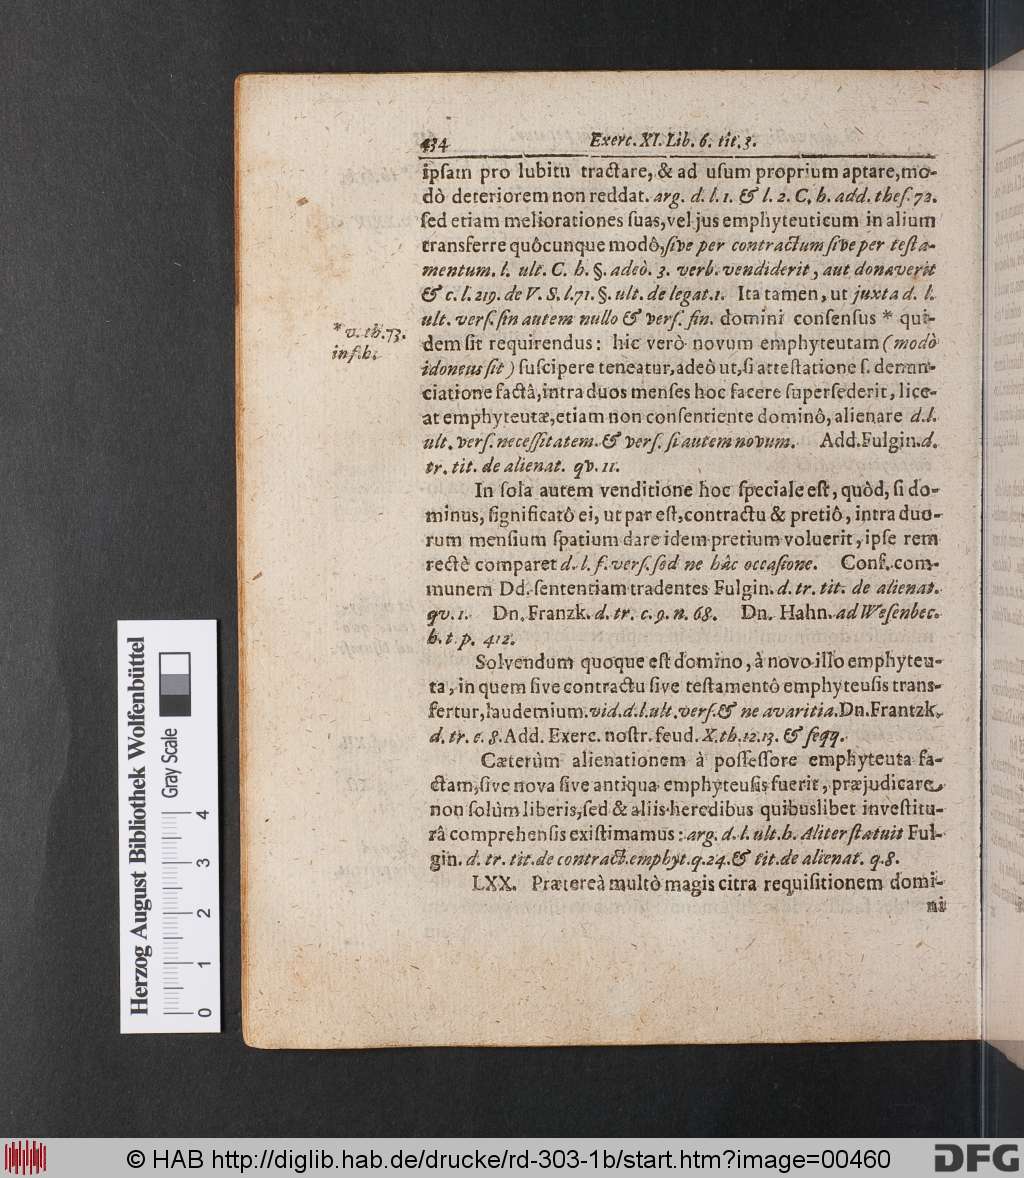 434 Exerc. XI. Lib. 6. tit. 3.
ipſam pro lubitu tractare, & ad uſum proprium aptare, mo-
dò deteriorem non reddat. arg. d. l. 1. & l. 2. C. h. add. theſ. 72.
ſed etiam meliorationes ſuas, vel jus emphyteuticum in alium
transferre quôcunque modô, ſive per contractum ſive per teſta-
mentum. l. ult. C. h. §. adeò. 3. verb. vendiderit, aut donaverit
& c. l. 219. de V. S. l. 71. §. ult. de legat. 1. Ita tamen, ut juxta d. l.
ult. verſ. ſin autem nullo & verſ. fin. domini conſenſus * qui-
* v. th. 73.
inf. h.
dem ſit requirendus: hic verò novum emphyteutam (modò
idoneus ſit) ſuſcipere teneatur, adeò ut, ſi atteſtatione ſ. denun-
ciatione factâ, intra duos menſes hoc facere ſuperſederit, lice-
at emphyteutæ, etiam non conſentiente dominô, alienare d. l.
ult. verſ. neceſſitatem. & verſ. ſi autem novum. Add. Fulgin. d.
tr. tit. de alienat. qv. 11.
In ſola autem venditione hoc ſpeciale eſt, quòd, ſi do-
minus, ſignificatô ei, ut par eſt, contractu & pretiô, intra duo-
rum menſium ſpatium dare idem pretium voluerit, ipſe rem
rectè comparet d. l. f. verſ. ſed ne hâc occaſione. Conf. com-
munem Dd. ſententiam tradentes Fulgin. d. tr. tit. de alienat.
qv. 1. Dn. Franzk. d. tr. c. 9. n. 68. Dn. Hahn. ad Weſenbec.
h. t. p. 412.
Solvendum quoque eſt domino, à novo illo emphyteu-
ta, in quem ſive contractu ſive teſtamentô emphyteuſis trans-
fertur, laudemium. vid. d. l. ult. verſ. & ne avaritia. Dn. Frantzk.
d. tr. c. 8. Add. Exerc. noſtr. feud. X. th. 12. 13. & ſeqq.
Cæterùm alienationem à poſſeſſore emphyteuta fa-
ctam, ſive nova ſive antiqua emphyteuſis fuerit, præjudicare
non ſolùm liberis, ſed & aliis heredibus quibuslibet inveſtitu-
râ comprehenſis exiſtimamus: arg. d. l. ult. h. Aliter ſtatuit Ful-
gin. d. tr. tit. de contract. emphyt. q. 24. & tit. de alienat. q. 8.
LXX. Prætereà multò magis citra requiſitionem domi-
ni
Herzog August Bibliothek Wolfenbüttel
Gray Scale
0 1 2 3 4
© HAB http://diglib.hab.de/drucke/rd-303-1b/start.htm?image=00460
DFG